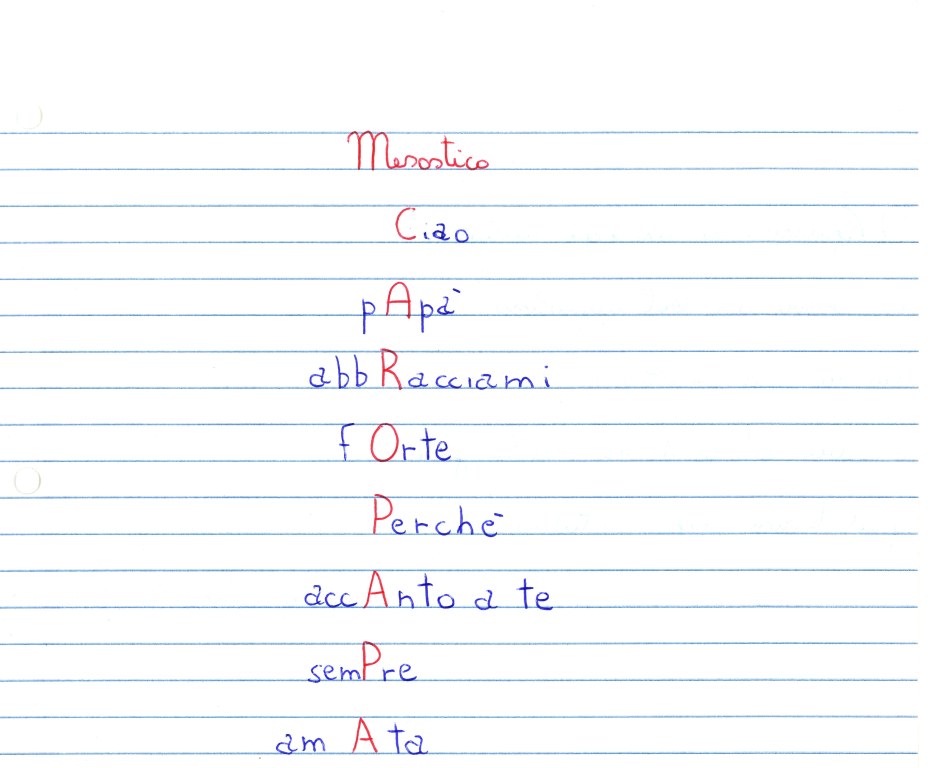 Mesostico
Ciao
pApà
abbRacciami
fOrte
Perchè
accAnto a te
semPre
amAta